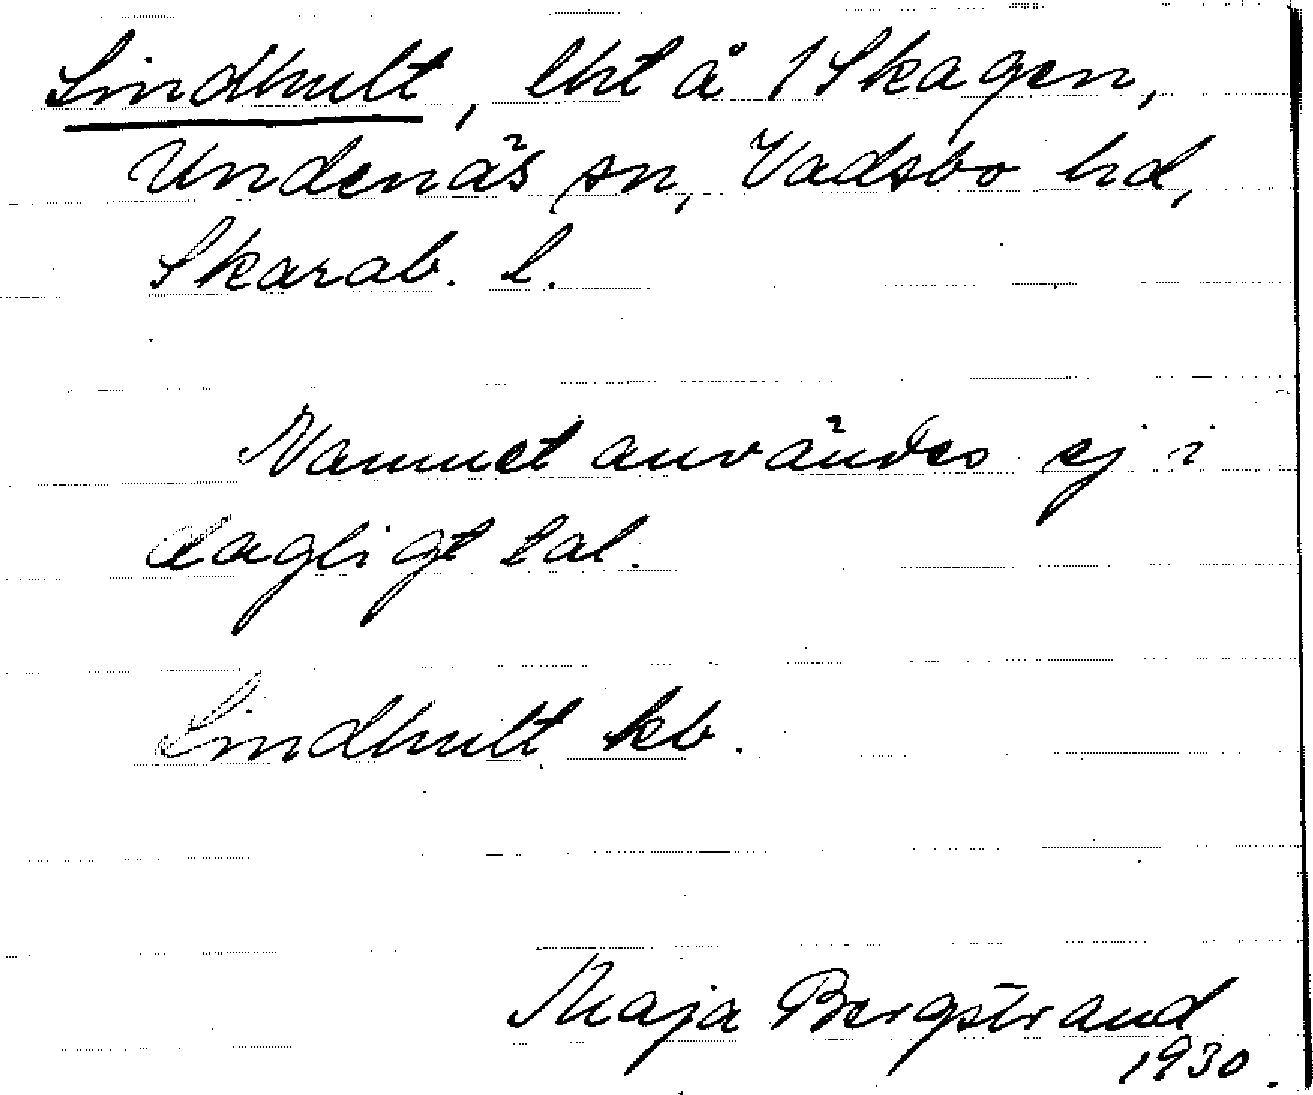 Lindhult, lht å 1 Skagen,
Undenäs sn, Vadsbo hd,
Skarab. l.
Namnet användes ej i
dagligt tal.
Lindhult kb.
Maja Bergstrand
1930.